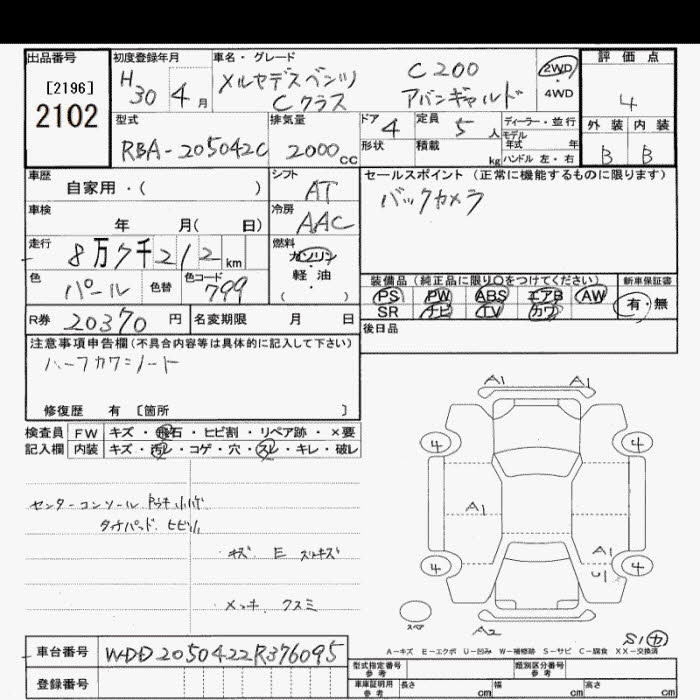 出品番号
[2196]
2102
初度登録年月
H30 4月
車名・グレード
メルセデスベンツ C200
Cクラス アバンギャルド
2WD
4WD
評価点
4
外装 内装
B B
型式
RBA-205042C
排気量
2000cc
ドア 4
形状
定員 5人
積載 kg
ディーラー・並行
モデル年式 年
ハンドル 左・右
車歴
自家用・( )
シフト
AT
車検
年 月( 日)
冷房
AAC
走行
8万7千212km
燃料
ガソリン・
軽油
( )
色
パール
色替
色コード
799
R券 20370円
名変期限 月 日
セールスポイント(正常に機能するものに限ります)
バックカメラ
装備品(純正品に限り○をつけてください)
PS PW ABS エアB AW
SR ナビ TV カワ
新車保証書
有・無
後日品
注意事項申告欄(不具合内容等は具体的に記入して下さい)
ハーフカワシート
修復歴 有 [箇所 ]
検査員記入欄
FW キズ・飛石・ヒビ割・リペア跡・×要
内装 キズ・汚レ・コゲ・穴・スレ・キレ・破レ
センターコンソール
タッチパッド ヒビ
キズ E スリキズ
メッキ クスミ
A1 A1
4 4
A1
A1
U1
4 4
スペア
A2
S1 カ
A-キズ E-エクボ U-凹み W-補修跡 S-サビ C-腐食 XX-交換済
車台番号
WDD2050422R376095
登録番号
型式指定番号 参考
類別区分番号 参考
車庫証明用 参考
長さ cm 幅 cm 高さ cm